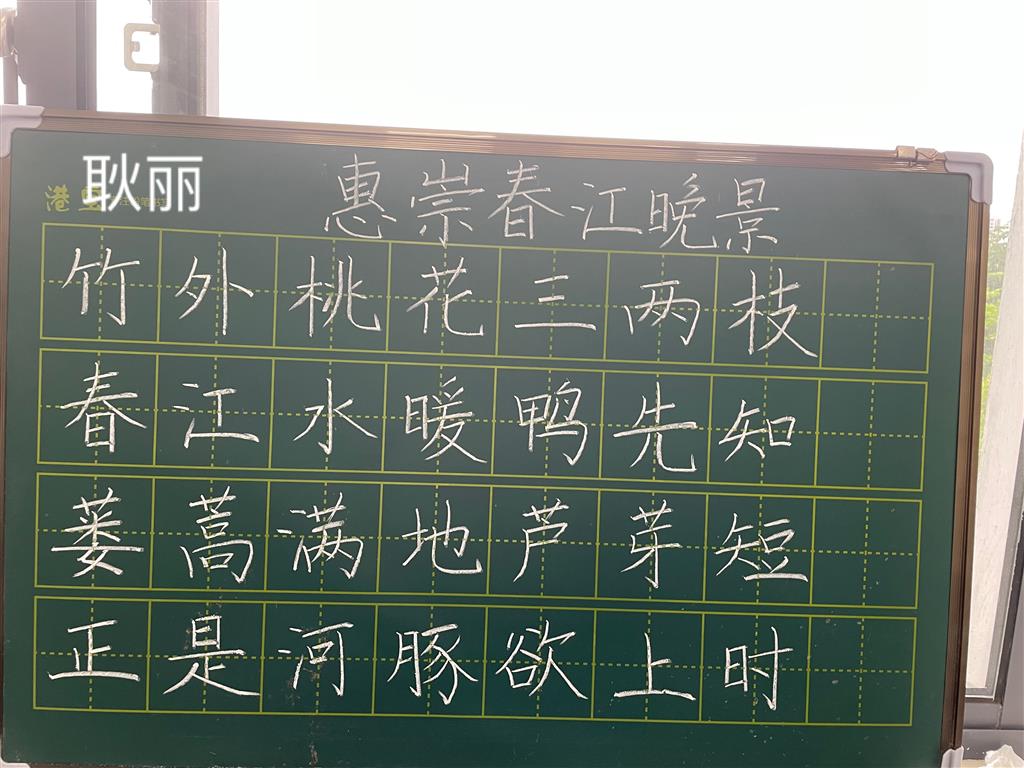 耿丽
惠崇春江晚景
竹外桃花三两枝
春江水暖鸭先知
蒌蒿满地芦芽短
正是河豚欲上时